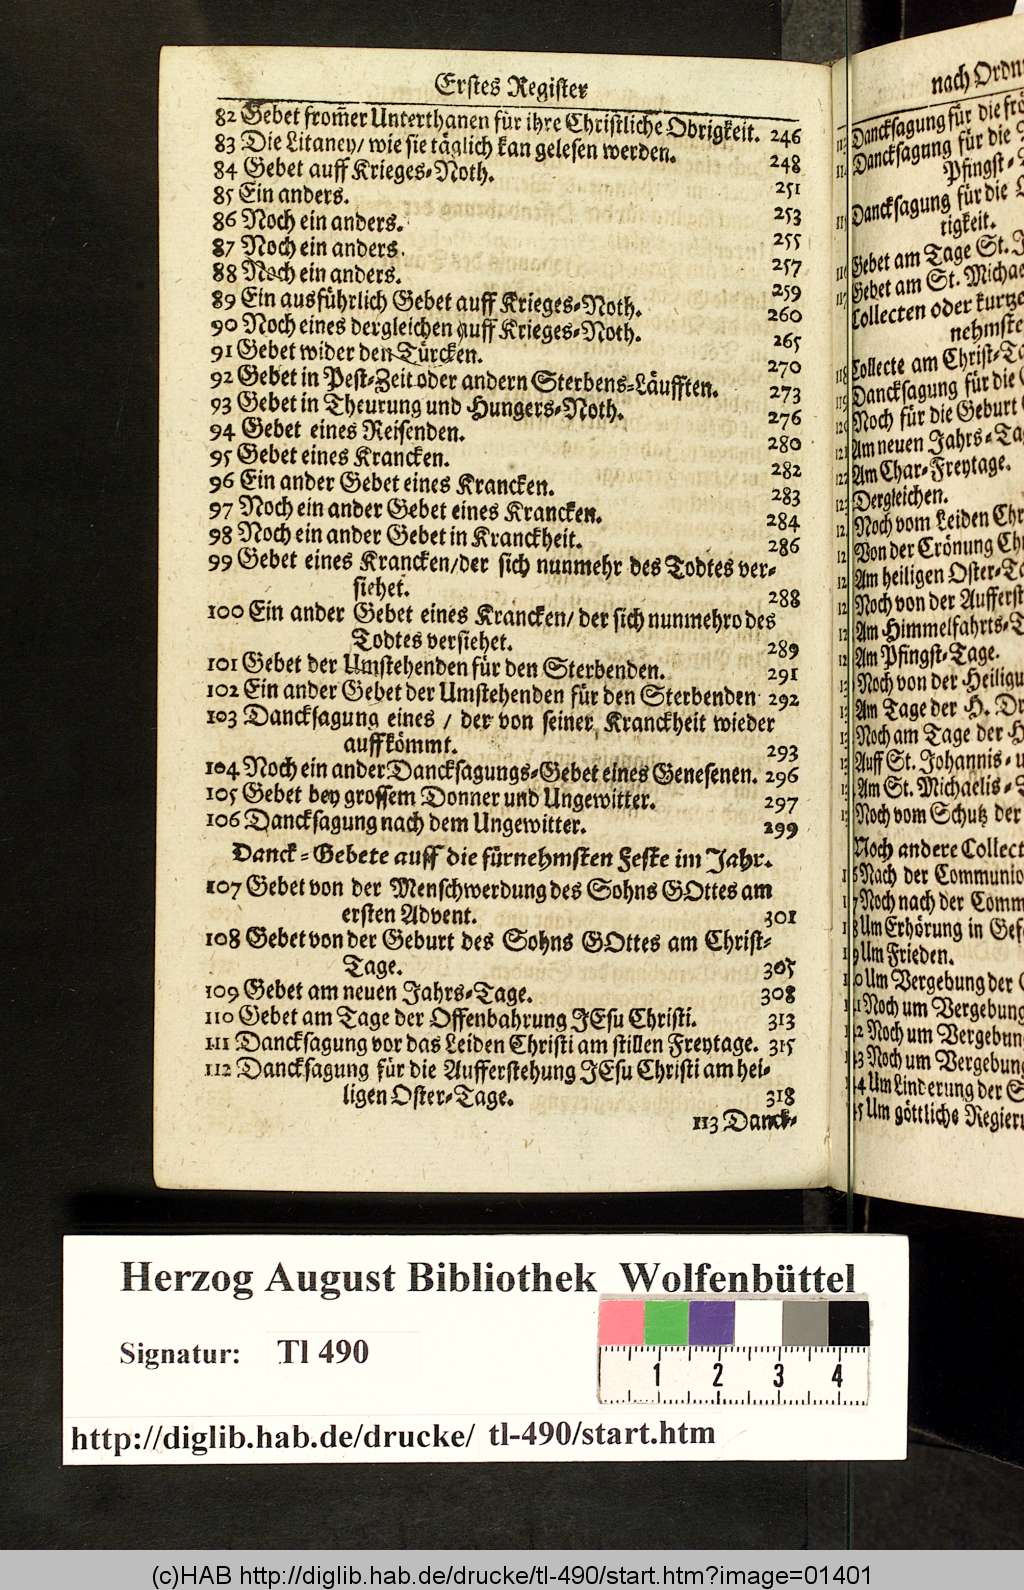 Erstes Register
82 Gebet from̃er Unterthanen für ihre Christliche Obrigkeit. 246
83 Die Litaney/ wie sie täglich kan gelesen werden. 248
84 Gebet auff Krieges-Noth. 251
85 Ein anders. 253
86 Noch ein anders. 255
87 Noch ein anders. 257
88 Noch ein anders. 259
89 Ein ausführlich Gebet auff Krieges-Noth. 260
90 Noch eines dergleichen auff Krieges-Noth. 265
91 Gebet wider den Türcken. 270
92 Gebet in Pest-Zeit oder andern Sterbens-Läufften. 273
93 Gebet in Theurung und Hungers-Noth. 276
94 Gebet eines Reisenden. 280
95 Gebet eines Krancken. 282
96 Ein ander Gebet eines Krancken. 283
97 Noch ein ander Gebet eines Krancken. 284
98 Noch ein ander Gebet in Kranckheit. 286
99 Gebet eines Krancken/der sich nunmehr des Todtes ver-
siehet. 288
100 Ein ander Gebet eines Krancken/ der sich nunmehro des
Todtes versiehet. 289
101 Gebet der Umstehenden für den Sterbenden. 291
102 Ein ander Gebet der Umstehenden für den Sterbenden 292
103 Dancksagung eines / der von seiner Kranckheit wieder
auffkömmt. 293
104 Noch ein ander Dancksagungs-Gebet eines Genesenen. 296
105 Gebet bey grossem Donner und Ungewitter. 297
106 Dancksagung nach dem Ungewitter. 299
Danck-Gebete auff die fürnehmsten Feste im Jahr.
107 Gebet von der Menschwerdung des Sohns GOttes am
ersten Advent. 301
108 Gebet von der Geburt des Sohns GOttes am Christ-
Tage. 305
109 Gebet am neuen Jahrs-Tage. 308
110 Gebet am Tage der Offenbahrung JEsu Christi. 313
111 Dancksagung vor das Leiden Christi am stillen Freytage. 315
112 Dancksagung für die Aufferstehung JEsu Christi am hei-
ligen Oster-Tage. 318
113 Danck-
nach Ordn
Dancksagung für die
Dancksagung für die
Pfingst-
Dancksagung für die
tigkeit.
Gebet am Tage St.
Gebet am St. Michae
Collecten oder kurtze
nehmste
Collecte am Christ-Ta
Dancksagung für die
Noch für die Geburt
Am neuen Jahrs-Ta
Am Char-Freytage.
Dergleichen.
Noch vom Leiden Chr
Von der Crönung Ch
Am heiligen Oster-Ta
Noch von der Aufferst
Am Himmelfahrts-T
Am Pfingst-Tage.
Noch von der Heiligu
Am Tage der H. Dr
Noch am Tage der H
Auff St. Johannis-
Am St. Michaelis-
Noch vom Schutz der
Noch andere Collect
Nach der Communio
Noch nach der Comm
Um Erhörung in Gef
Um Frieden.
Um Vergebung der
Noch um Vergebung
Noch um Vergebun
Noch um Vergebun
Um Linderung der S
Um göttliche Regier
Herzog August Bibliothek Wolfenbüttel
Signatur: Tl 490
1 2 3 4
http://diglib.hab.de/drucke/ tl-490/start.htm
(c)HAB http://diglib.hab.de/drucke/tl-490/start.htm?image=01401